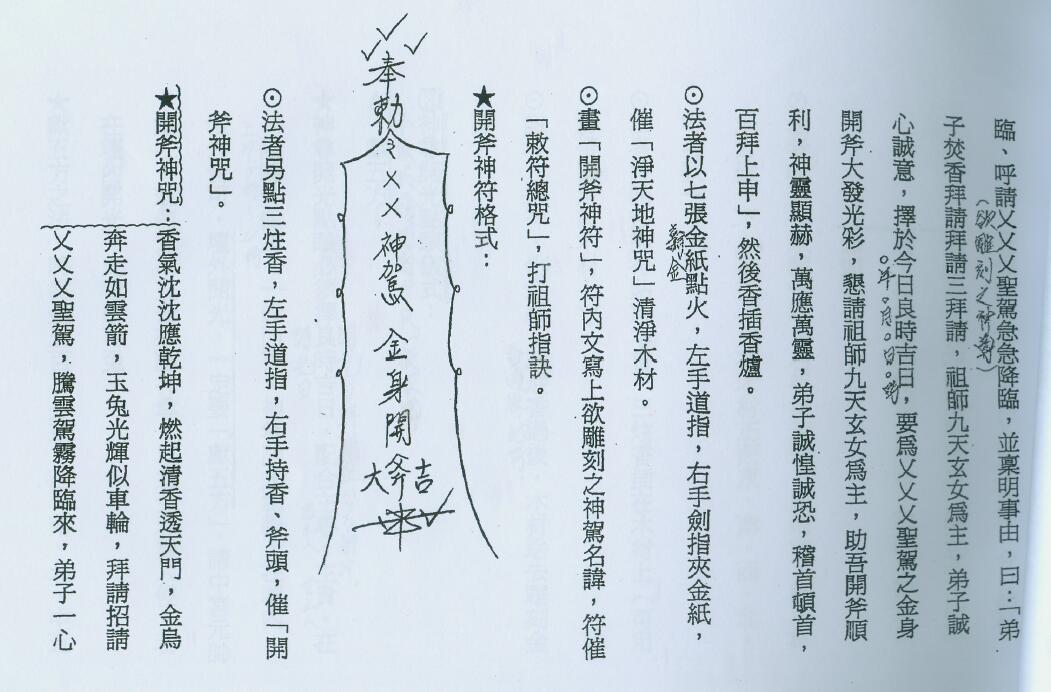 臨、呼請乂乂乂聖駕急急降臨，並稟明事由，曰：「弟
（欲雕刻之神尊）
子焚香拜請拜請三拜請，祖師九天玄女為主，弟子誠
心誠意，擇於今日良時吉日，要為乂乂乂聖駕之金身
○年○月○日○時
開斧大發光彩，懇請祖師九天玄女為主，助吾開斧順
利，神靈顯赫，萬應萬靈，弟子誠惶誠恐，稽首頓首，
百拜上申」，然後香插香爐。
⊙法者以七張金紙點火，左手道指，右手劍指夾金紙，
壽金
催「淨天地神咒」清淨木材。
⊙畫「開斧神符」，符內文寫上欲雕刻之神駕名諱，符催
「敕符總咒」，打祖師指訣。
★開斧神符格式：
奉勅令乂乂神駕金身開斧
大吉
⊙法者另點三炷香，左手道指，右手持香、斧頭，催「開
斧神咒」。
★開斧神咒：香氣沈沈應乾坤，燃起清香透天門，金烏
奔走如雲箭，玉兔光輝似車輪，拜請招請
乂乂乂聖駕，騰雲駕霧降臨來，弟子一心